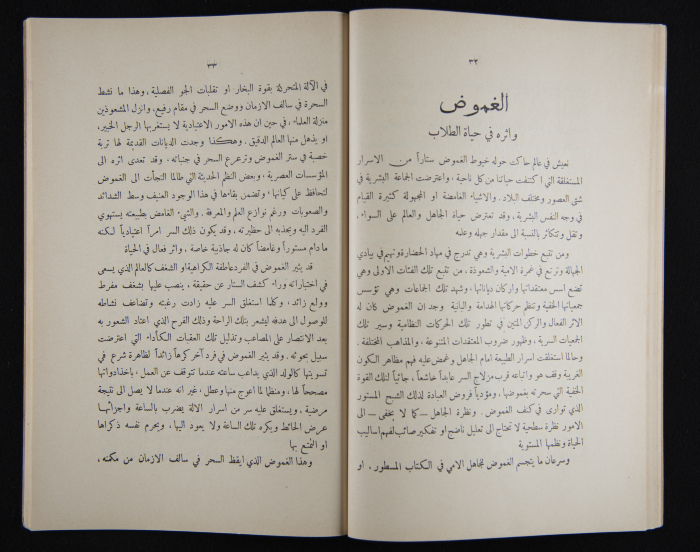 ٣٢
الغموض
واثره في حياة الطلاب
نعيش في عالم حاكت حوله خيوط الغموض ستاراً من الاسرار
المستغلقة التي اكتنفت حياتنا من كل ناحية ، واعترضت الجماعة البشرية في
شتى العصور ومختلف البلاد . والاشياء الغامضة او المجهولة كثيرة القيام
في وجه النفس البشرية ، وقد تعترض حياة الجاهل والعالم على السواء ،
وتقل وتتكاثر بالنسبة الى مقدار جهله وعلمه
ومن تتبع خطوات البشرية وهي تدرج في مهاد الحضارة وتهيم في بيادي
الجهالة وترتع في غمرة الامية والشعوذة ، من تتبع تلك الفئات الاولى وهي
تضع اسس معتقداتها واركان دياناتها ، وشهد تلك الجماعات وهي تؤسس
جمعياتها الخفية وتنظم حركاتها الهدامة والبانية وجد ان الغموض كان له
الاثر الفعال والركن المتين في تطور تلك الحركات النظامية وسير تلك
الجمعيات السرية ، وظهور ضروب المعتقدات المتنوعة ، والمذاهب المختلفة .
وحالما استغلقت اسرار الطبيعة امام الجاهل وغمض عليه فهم مظاهر الكون
الغريبة وقف هو واتباعه قرب مزلاج السر عابداً خاشعاً ، جاثياً لتلك القوة
الخفية التي سحرته بغموضها ، ومؤدياً فروض العبادة لذلك الشبح المستور
الذي توارى في كنف الغموض . ونظرة الجاهل — كما لا يخفى — الى
الامور نظرة سطحية لا تحتاج الى تعليل ناضج او تفكير صائب لفهم اساليب
الحياة ونظمها المستوية
وسرعان ما يتجسم الغموض للجاهل الامي في الكتاب المسطور ، او
٣٣
في الآلة المتحركة بقوة البخار او تقلبات الجو الفصلية ، وهذا ما نشط
السحرة في سالف الازمان ووضع السحر في مقام رفيع ، وانزل المشعوذين
منزلة العلماء ، في حين ان هذه الامور الاعتيادية لا يستغربها الرجل الخبير ،
او يذهل منها العالم الدقيق . وهكذا وجدت الديانات القديمة لها تربة
خصبة في ستر الغموض وترعرع السحر في جنباته . وقد تعدى اثره الى
المؤسسات العصرية ، وبعض النظم الحديثة التي طالما التجأت الى الغموض
لتحافظ على كيانها ، وتضمن بقاءها في هذا الوجود العنيف وسط الشدائد
والصعوبات ورغم نوازع العلم والمعرفة . والشيء الغامض بطبيعته يستهوي
الفرد اليه ويجذبه الى حظيرته ، وقد يكون ذلك السر امراً اعتيادياً لكنه
ما دام مستوراً وغامضاً كان له جاذبية خاصة ، واثر فعال في الحياة
قد يثير الغموض في الفرد عاطفة الكراهية او الشغف كالعالم الذي يسعى
في اختباراته وراء كشف الستار عن حقيقة ، ينصب عليها بشغف مفرط
وولع زائد ، وكلما استغلق السر عليه زادت رغبته وتضاعف نشاطه
للوصول الى هدفه ليشعر بتلك الراحة وذلك الفرح الذي اعتاد الشعور به
بعد الانتصار على المصاعب وتذليل تلك العقبات الكأداء التي اعترضت
سبيل بحوثه . وقد يثير الغموض في فرد آخر كرهاً زائداً لظاهرة شرع في
تسويتها كالولد الذي يداعب ساعته عندما تتوقف عن العمل ، باخذ ادواتها
مصححاً لها ، ومنظماً لما اعوج منها وعطل ، غير انه عندما لا يصل الى نتيجة
مرضية ، ويستغلق عليه سر من اسرار الآلة يضرب بالساعة واجزائها
عرض الحائط ويكره تلك الساعة ولا يعود اليها ، ويحرم نفسه ذكراها
او التمتع بها
وهذا الغموض الذي ايقظ السحر في سالف الازمان من مكمنه ،